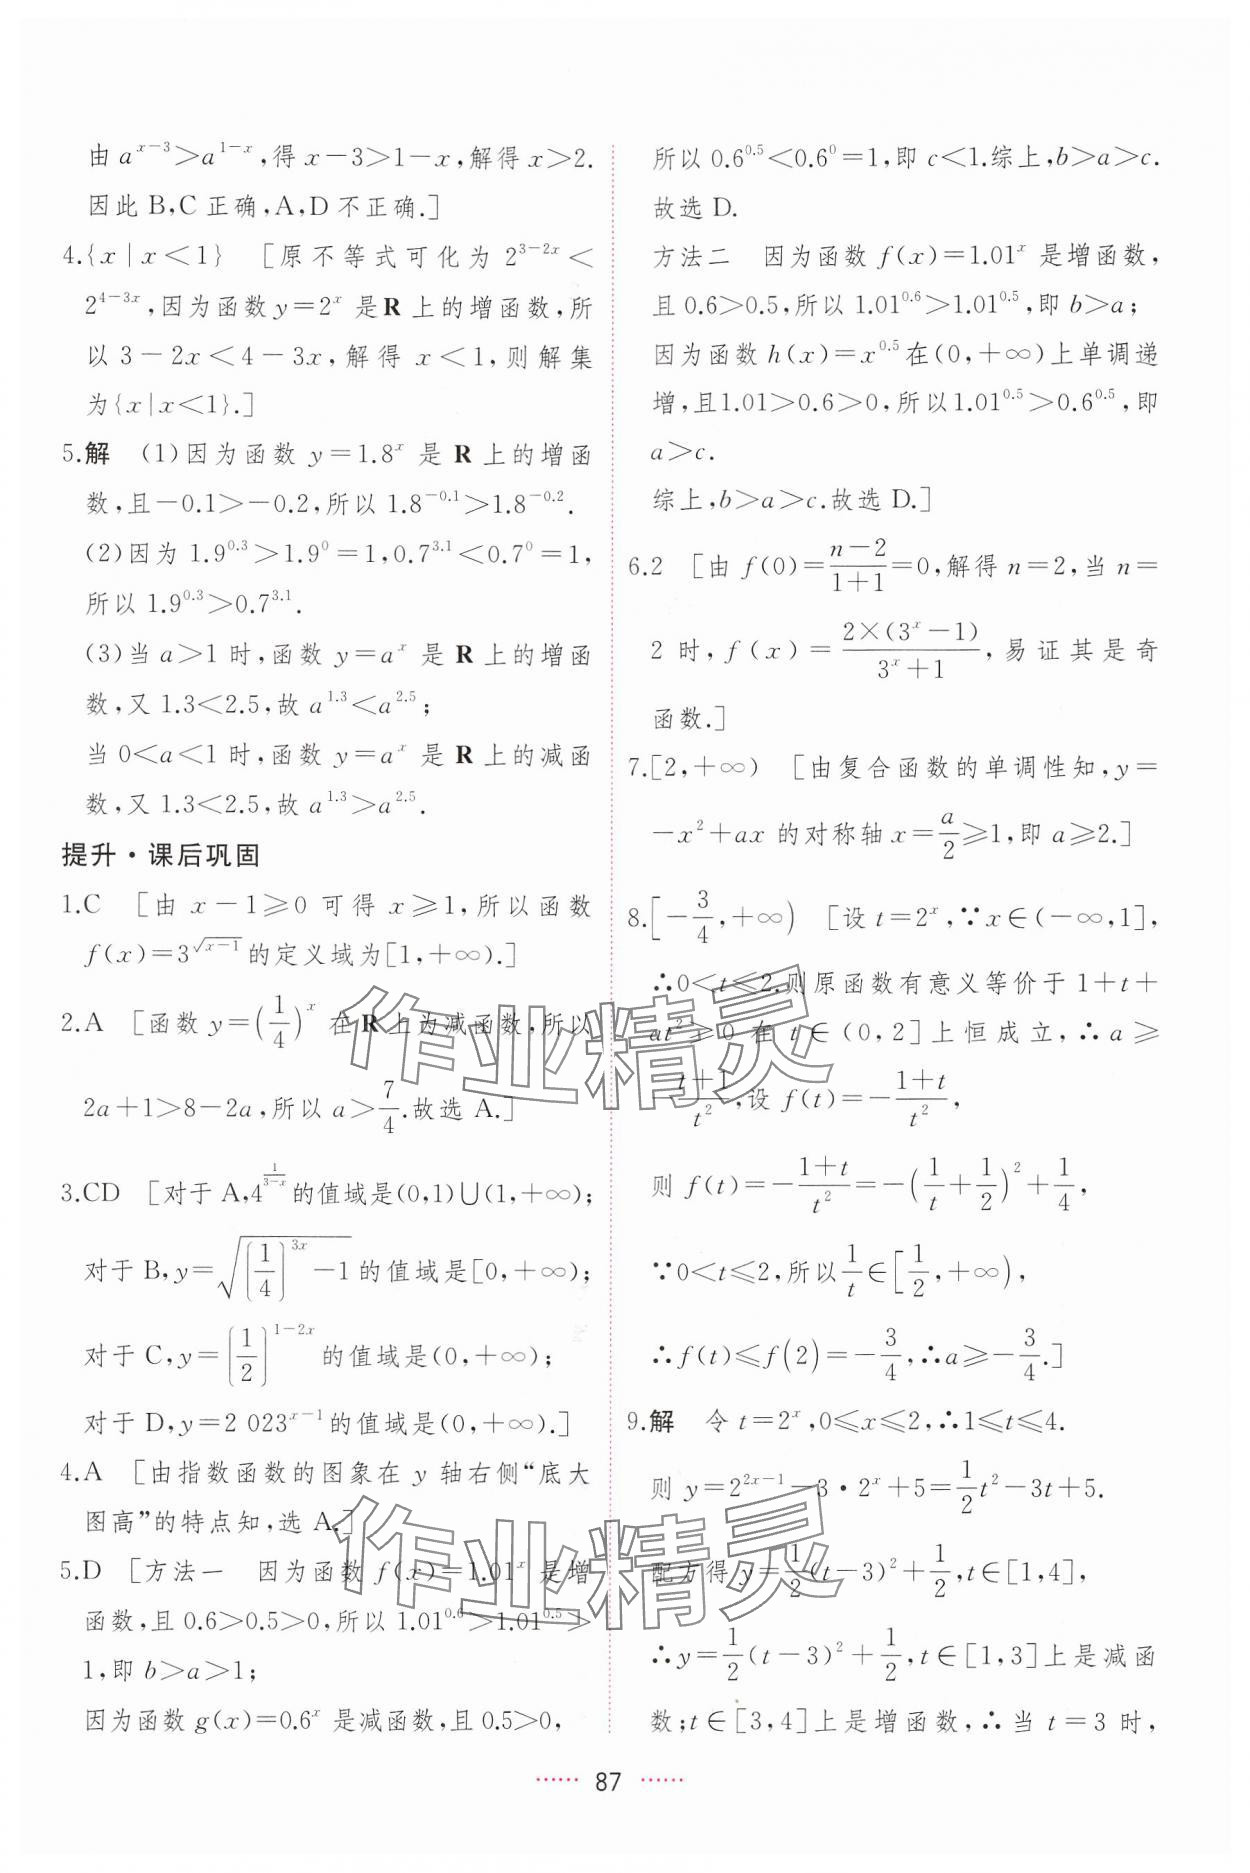 由 a^{x-3}>a^{1-x},得 x-3>1-x,解得 x>2.
因此 B,C 正确,A,D 不正确.]
4.{x|x<1} [原不等式可化为 2^{3-2x}<
2^{4-3x},因为函数 y=2^x 是 R 上的增函数,所
以 3-2x<4-3x,解得 x<1,则解集
为{x|x<1}.]
5.解 (1)因为函数 y=1.8^x 是 R 上的增函
数,且-0.1>-0.2,所以 1.8^{-0.1}>1.8^{-0.2}.
(2)因为 1.9^{0.3}>1.9^0=1,0.7^{3.1}<0.7^0=1,
所以 1.9^{0.3}>0.7^{3.1}.
(3)当 a>1 时,函数 y=a^x 是 R 上的增函
数,又 1.3<2.5,故 a^{1.3}<a^{2.5};
当 0<a<1 时,函数 y=a^x 是 R 上的减函
数,又 1.3<2.5,故 a^{1.3}>a^{2.5}.
提升·课后巩固
1.C [由 x-1≥0 可得 x≥1,所以函数
f(x)=3^{\sqrt{x-1}} 的定义域为[1,+∞).]
2.A [函数 y=(1/4)^x 在 R 上为减函数,所以
2a+1>8-2a,所以 a>7/4.故选 A.]
3.CD [对于 A,4^{1/(3-x)} 的值域是(0,1)∪(1,+∞);
对于 B,y=\sqrt{(1/4)^{3x}-1} 的值域是[0,+∞);
对于 C,y=(1/2)^{1-2x} 的值域是(0,+∞);
对于 D,y=2 023^{x-1} 的值域是(0,+∞).]
4.A [由指数函数的图象在 y 轴右侧“底大
图高”的特点知,选 A.]
5.D [方法一 因为函数 f(x)=1.01^x 是增
函数,且 0.6>0.5>0,所以 1.01^{0.6}>1.01^{0.5}>
1,即 b>a>1;
因为函数 g(x)=0.6^x 是减函数,且 0.5>0,
所以 0.6^{0.5}<0.6^0=1,即 c<1.综上,b>a>c.
故选 D.
方法二 因为函数 f(x)=1.01^x 是增函数,
且 0.6>0.5,所以 1.01^{0.6}>1.01^{0.5},即 b>a;
因为函数 h(x)=x^{0.5} 在(0,+∞)上单调递
增,且1.01>0.6>0,所以1.01^{0.5}>0.6^{0.5},即
a>c.
综上,b>a>c.故选 D.]
6.2 [由 f(0)=(n-2)/(1+1)=0,解得 n=2,当 n=
2 时,f(x)=2×(3^x-1)/(3^x+1),易证其是奇
函数.]
7.[2,+∞) [由复合函数的单调性知,y=
-x^2+ax 的对称轴 x=a/2≥1,即 a≥2.]
8.[-3/4,+∞) [设 t=2^x,∵x∈(-∞,1],
∴0<t≤2.则原函数有意义等价于 1+t+
at^2≥0 在 t∈(0,2]上恒成立,∴a≥
-(t+1)/t^2,设 f(t)=-(1+t)/t^2,
则 f(t)=-(1+t)/t^2=-(1/t+1/2)^2+1/4,
∵0<t≤2,所以 1/t∈[1/2,+∞),
∴f(t)≤f(2)=-3/4,∴a≥-3/4.]
9.解 令 t=2^x,0≤x≤2,∴1≤t≤4.
则 y=2^{2x-1}-3·2^x+5=1/2t^2-3t+5.
配方得 y=1/2(t-3)^2+1/2,t∈[1,4],
∴y=1/2(t-3)^2+1/2,t∈[1,3]上是减函
数;t∈[3,4]上是增函数,∴当 t=3 时,
87
作业精灵
作业精灵